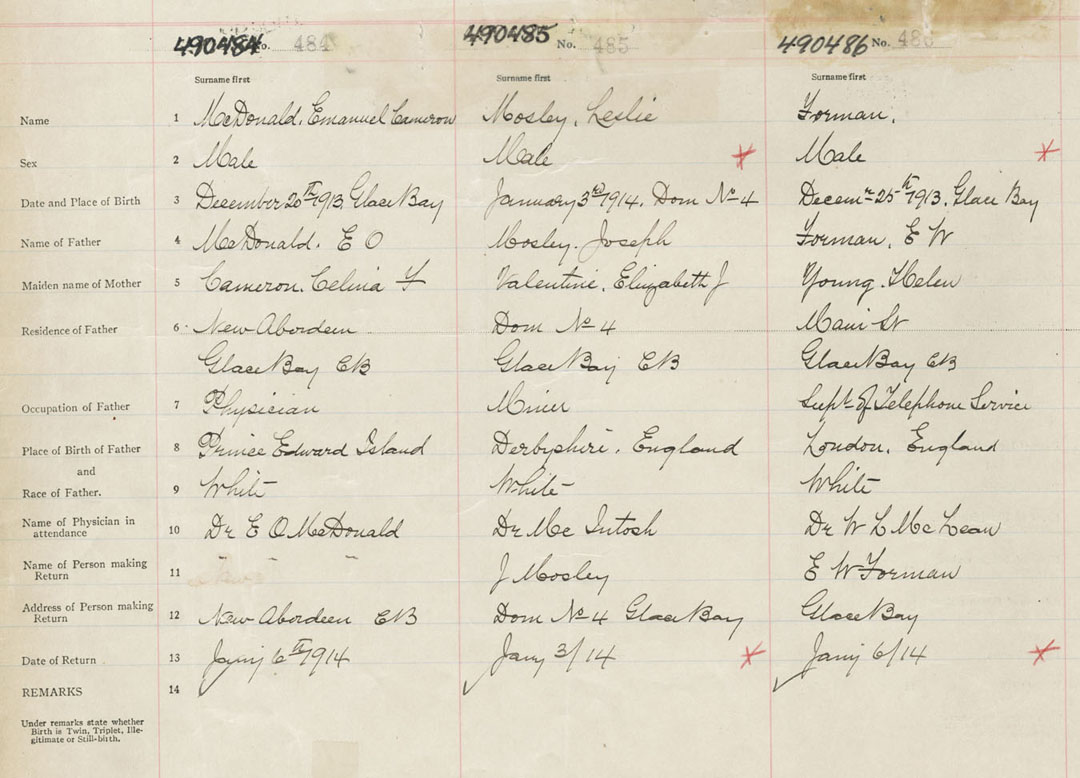 490484 No. 484 490485 No. 485 490486 No. 486
Surname first Surname first Surname first
Name 1 McDonald, Emanuel Cameron Mosley, Leslie Forman,
Sex 2 Male Male Male
Date and Place of Birth 3 December 20th 1913, Glace Bay January 3rd 1914. Dom No 4 Decemr 25th 1913. Glace Bay
Name of Father 4 McDonald. E O Mosley. Joseph Forman, E W
Maiden name of Mother 5 Cameron. Celina Valentine, Elizabeth J Young. Helen
Residence of Father 6 New Aberdeen Dom No 4 Main St
Glace Bay CB Glace Bay CB Glace Bay CB
Occupation of Father 7 Physician Miner Supt of Telephone Service
Place of Birth of Father 8 Prince Edward Island Derbyshire. England London, England
and
Race of Father. 9 White White White
Name of Physician in
attendance 10 Dr E O McDonald Dr McIntosh Dr W L McLean
Name of Person making
Return 11 " " " J Mosley E W Forman
Address of Person making
Return 12 New Aberdeen CB Dom No 4 Glace Bay Glace Bay
Date of Return 13 Jany 6th 1914 Jany 3/14 Jany 6/14
REMARKS 14
Under remarks state whether
Birth is Twin, Triplet, Ille-
gitimate or Still-birth.